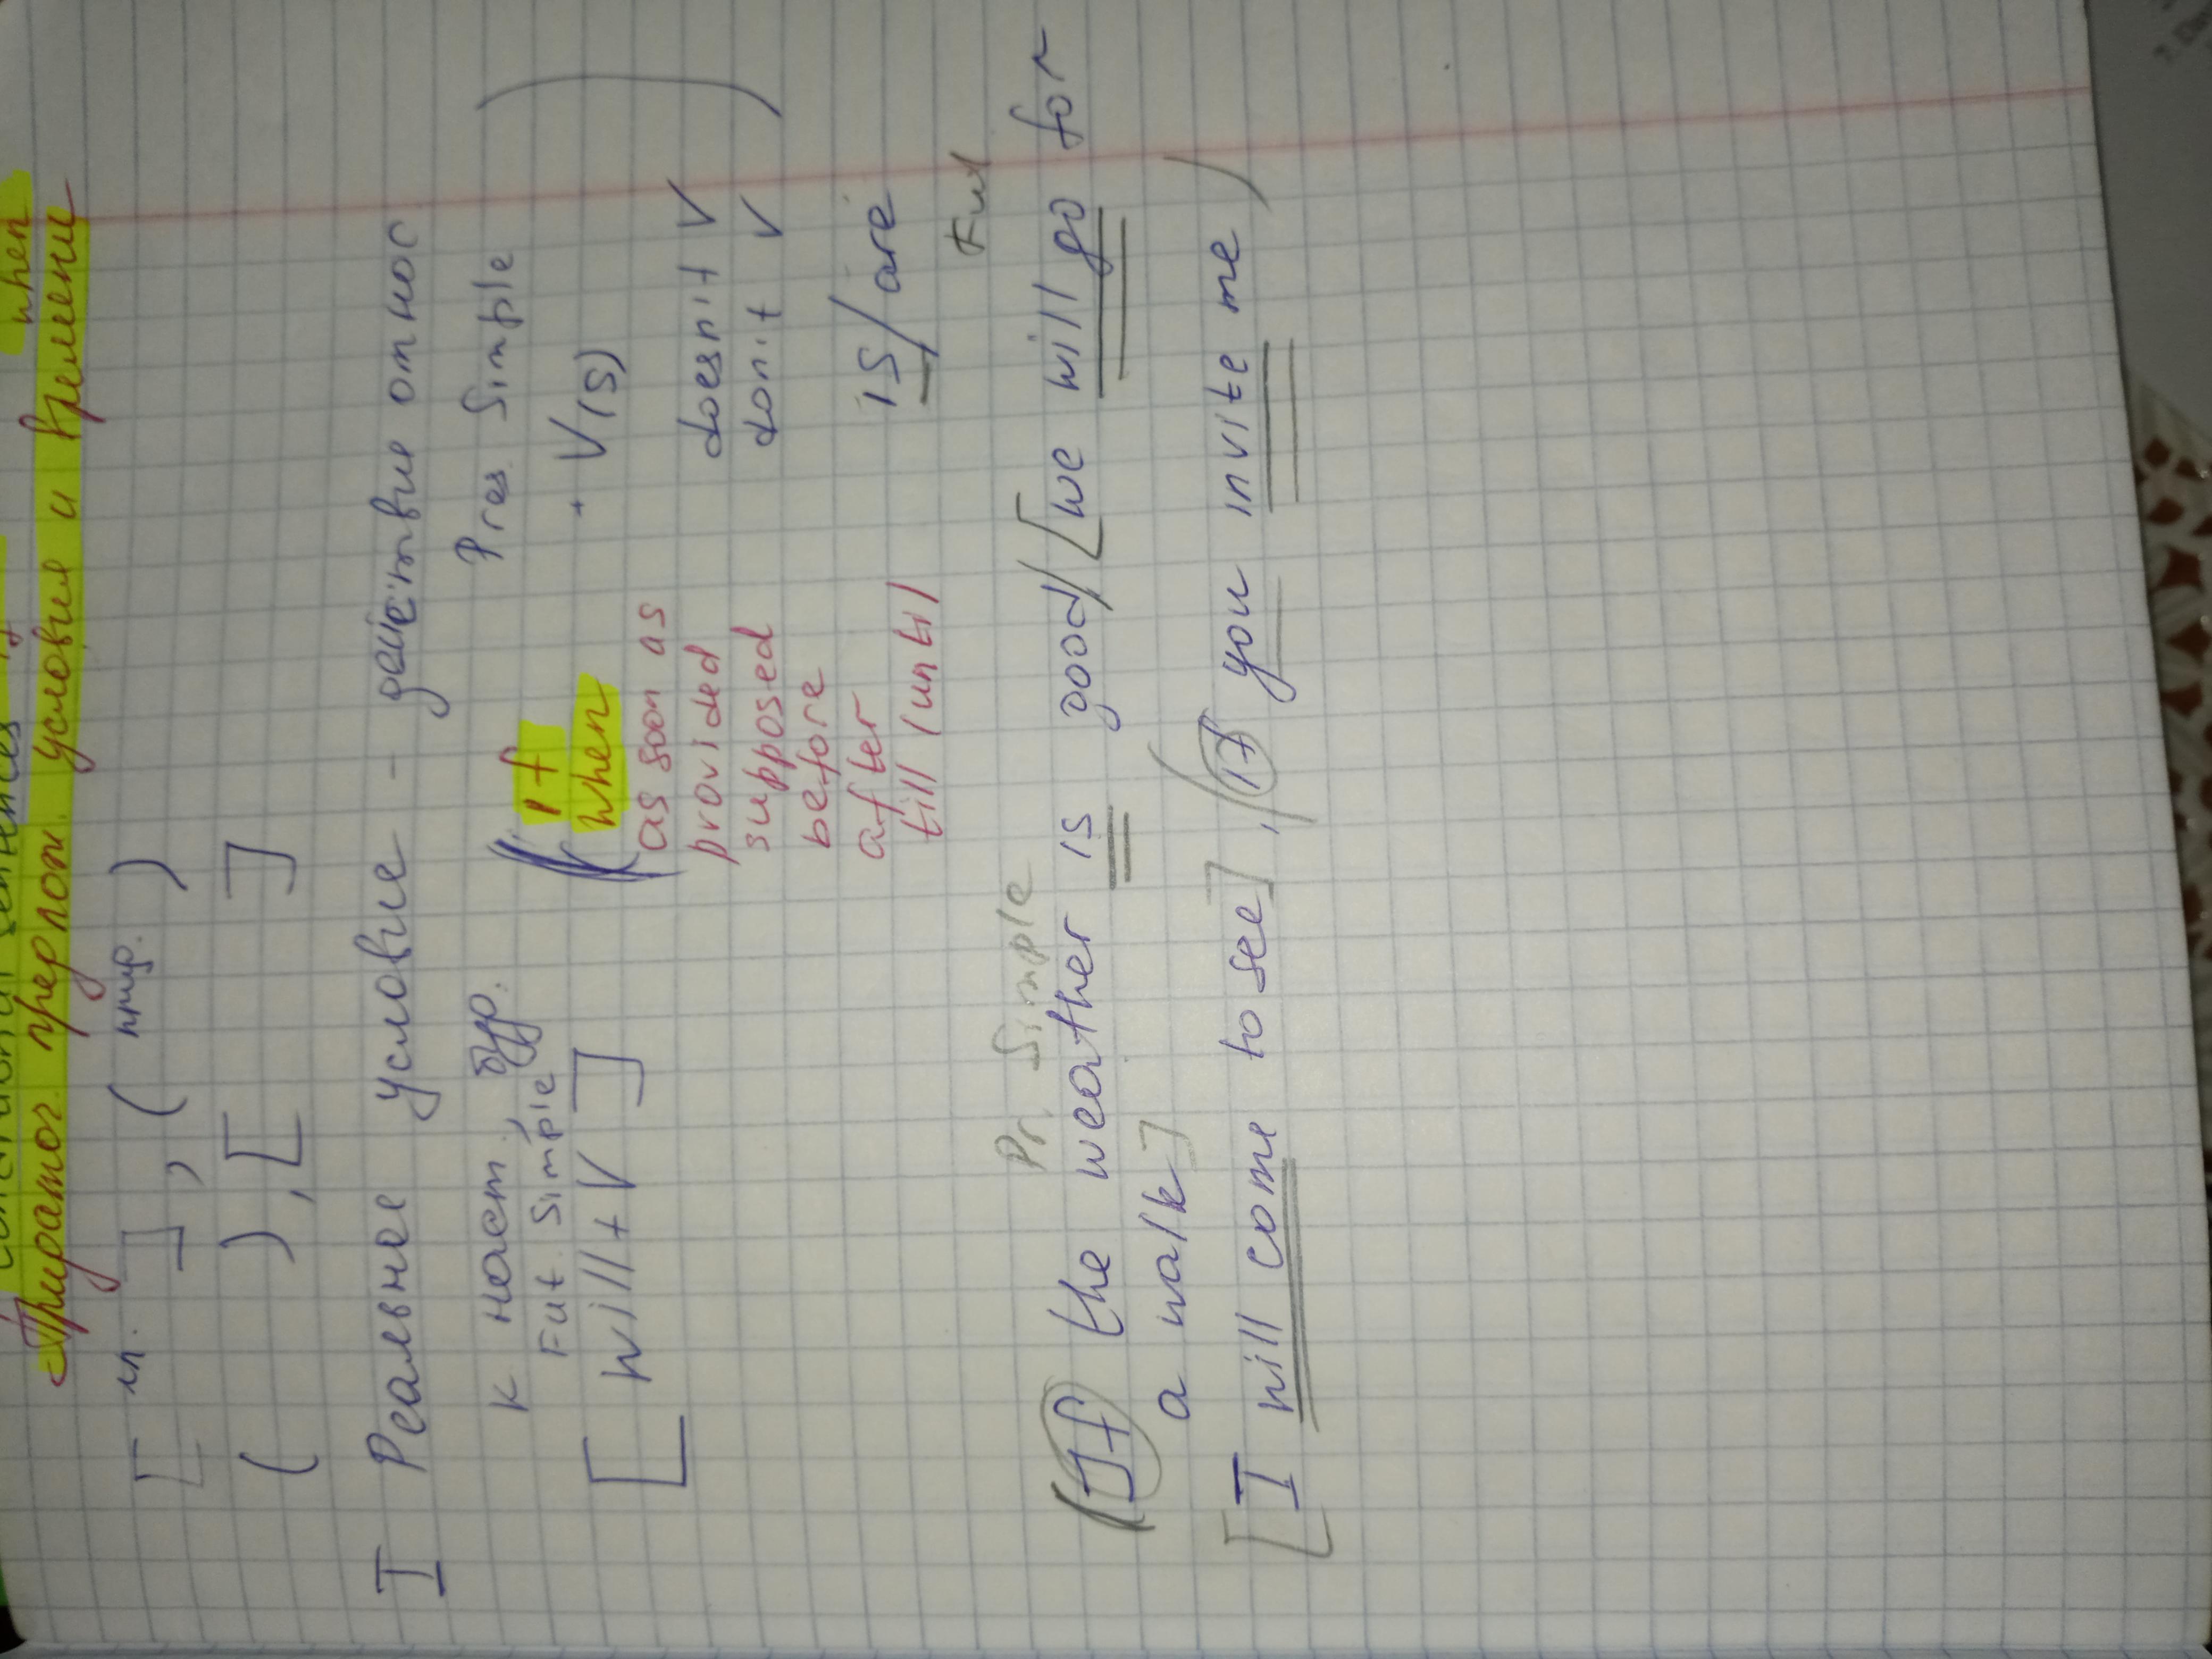 Conditional sentences if when
Придаточ. предлож. условия и времени
[ гл. ], ( прид. )
( ), [ ]
I Реальное условие - действие относ
к наст., буд. Pres. Simple
Fut. Simple
[ will + V ] ( if + V(s) )
when
as soon as doesn't V
provided don't V
supposed
before is/are
after
till (until)
Pr. Simple Fut
(If the weather is good) [we will go for
a walk]
[I will come to see], (if you invite me)